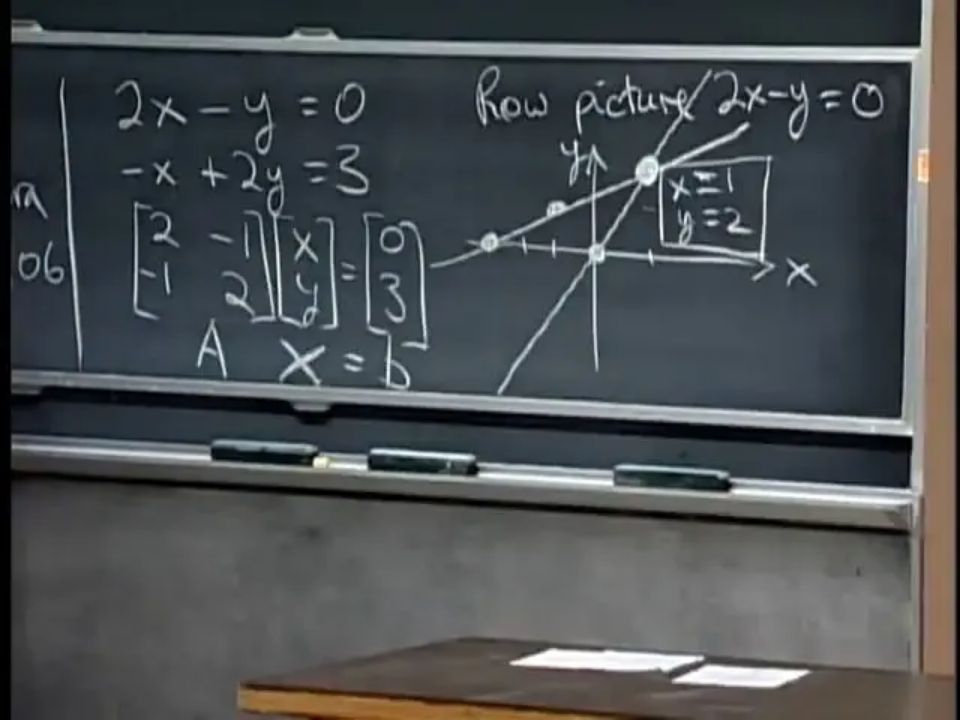 06
2x - y = 0
-x + 2y = 3
[2 -1] [x] = [0]
[-1 2] [y] [3]
A X = b
Row picture 2x-y=0
y
x = 1
y = 2
x